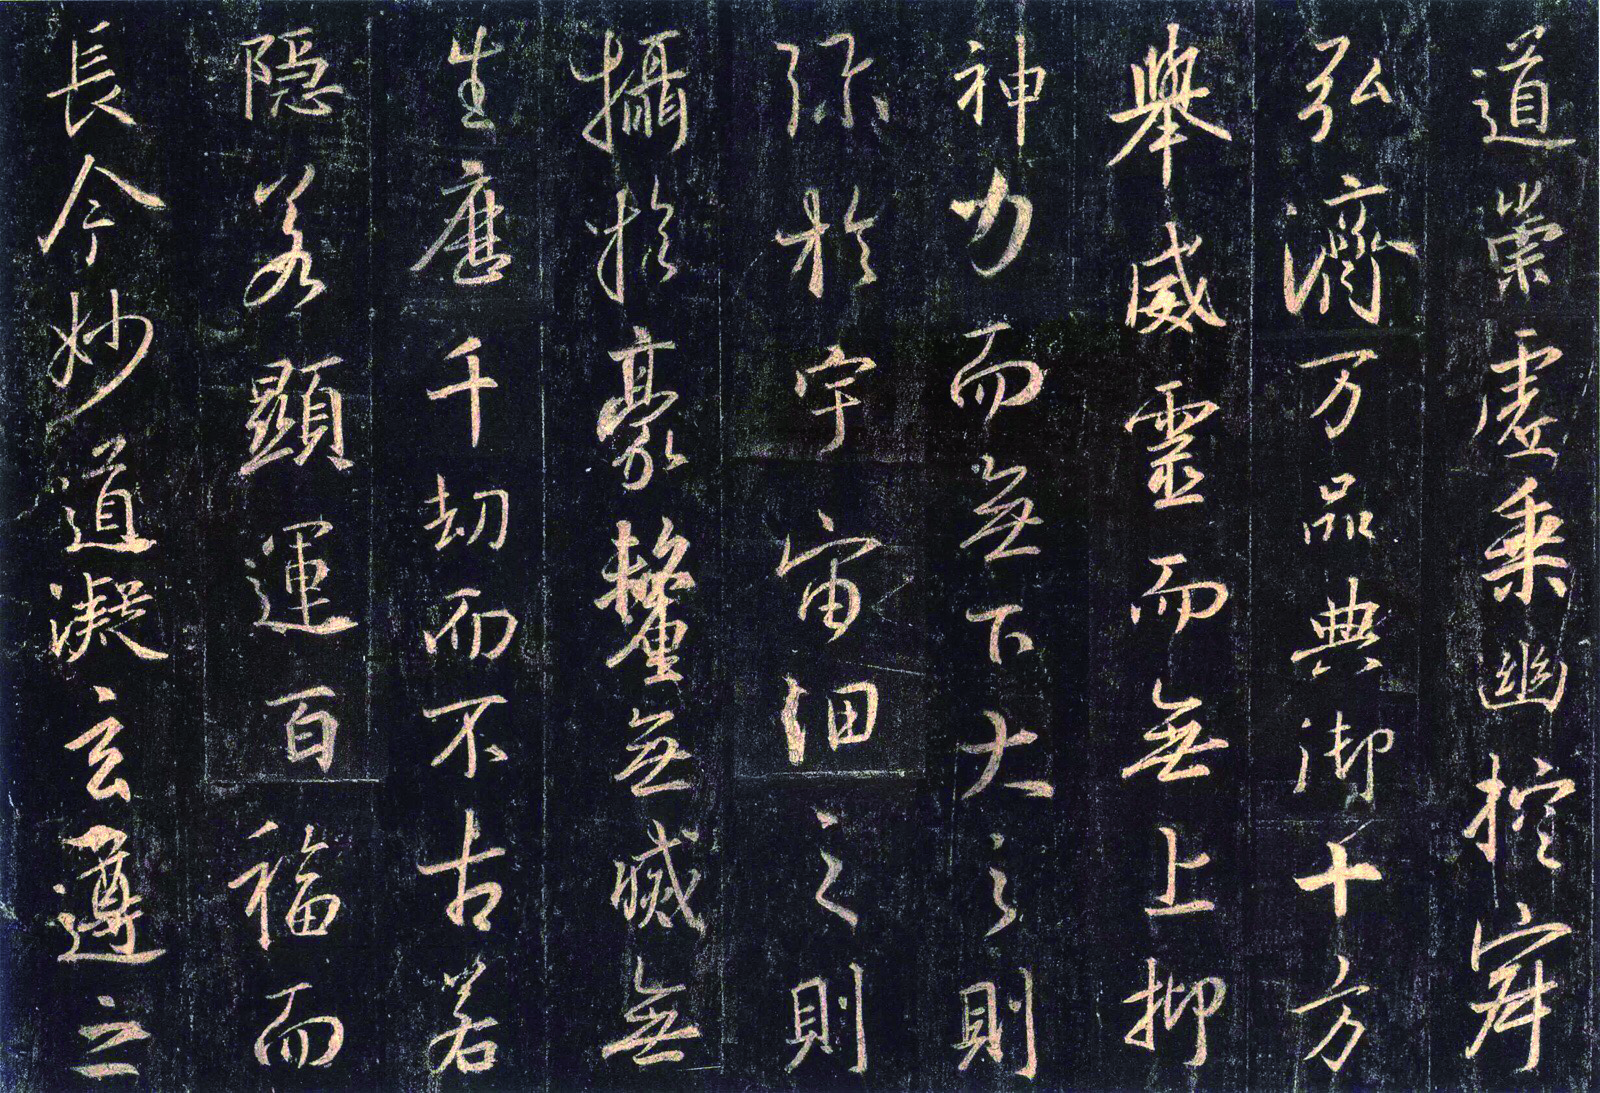 道崇虚乗幽控寂
弘濟万品典御十方
舉威靈而無上抑
神力而無下大之則
弥於宇宙細之則
攝於豪釐無滅無
生歷千劫而不古若
隱若顯運百福而
長今妙道凝玄遵之